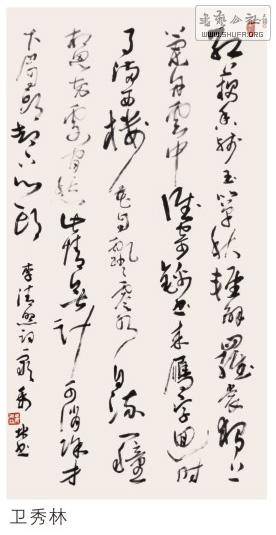 书艺公社
WWW.SHUFA.ORG
红藕香残玉簟秋轻解罗裳独上
兰舟云中谁寄锦书来雁字回时
月满西楼花自飘零水自流一种
相思两处闲愁此情无计可消除才
下眉头却上心头
李清照词 秀林书
卫秀林